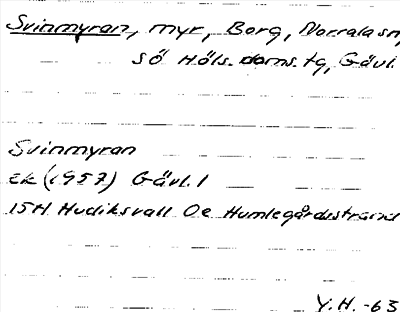 Svinmyran, myr, Borg, Norrala sn,
SÖ Häls. doms. tg, Gävl.
Svinmyran
Ek (1957) Gävl. l
15H Hudiksvall 0e Humlegårdsstrand
Y.H. -63